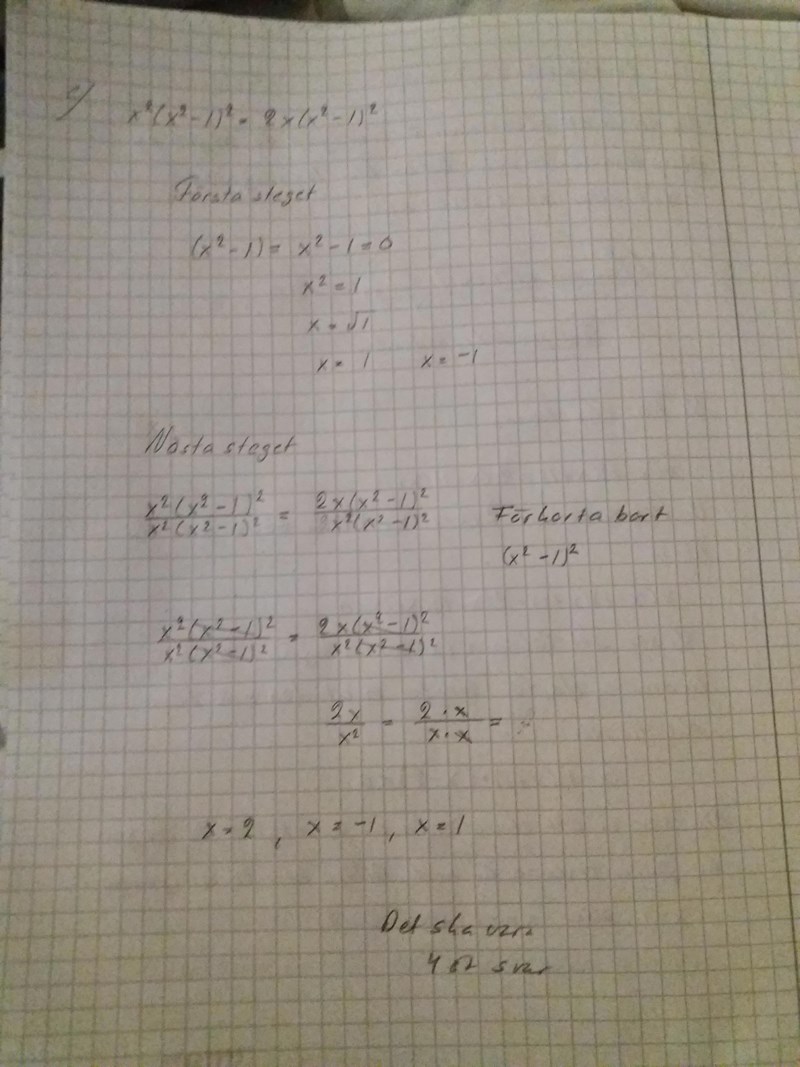 c)
x²(x²-1)² = 2x(x²-1)²
Första steget
(x²-1) = x²-1=0
x² = 1
x = √1
x = 1 x = -1
Nästa steget
x²(x²-1)² / x²(x²-1)² = 2x(x²-1)² / x²(x²-1)² Förkorta bort
(x²-1)²
x²(x²-1)² / x²(x²-1)² = 2x(x²-1)² / x²(x²-1)²
2x / x² = 2·x / x·x =
x = 2 , x = -1 , x = 1
Det ska vara
4 st svar